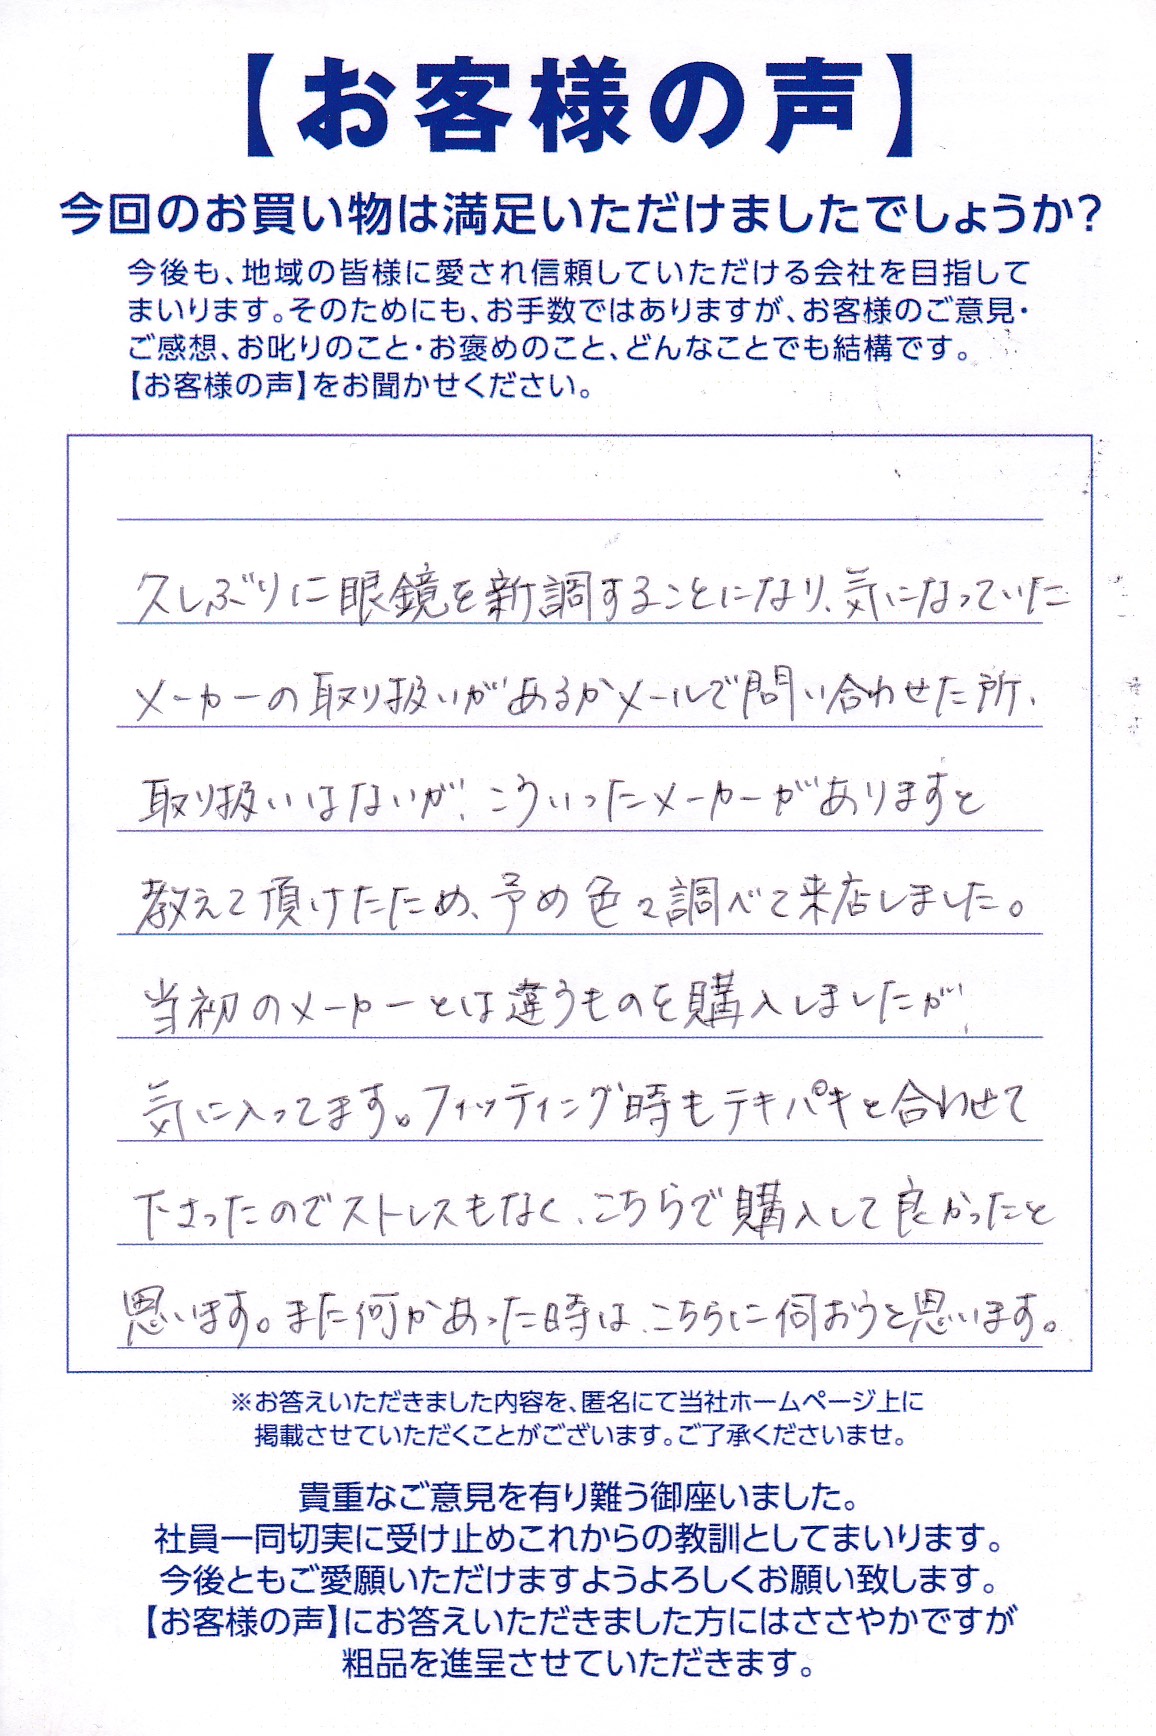 【お客様の声】
今回のお買い物は満足いただけましたでしょうか?
今後も、地域の皆様に愛され信頼していただける会社を目指して
まいります。そのためにも、お手数ではありますが、お客様のご意見・
ご感想、お叱りのこと・お褒めのこと、どんなことでも結構です。
【お客様の声】をお聞かせください。
久しぶりに眼鏡を新調することになり、気になっていた
メーカーの取り扱いがあるかメールで問い合わせた所、
取り扱いはないが、こういったメーカーがありますと
教えて頂けたため、予め色々調べて来店しました。
当初のメーカーとは違うものを購入しましたが、
気に入ってます。フィッティング時もテキパキと合わせて
下さったのでストレスもなく、こちらで購入して良かったと
思います。また何かあった時は、こちらに伺おうと思います。
※お答えいただきました内容を、匿名にて当社ホームページ上に
掲載させていただくことがございます。ご了承くださいませ。
貴重なご意見を有り難う御座いました。
社員一同切実に受け止めこれからの教訓としてまいります。
今後ともご愛願いただけますようよろしくお願い致します。
【お客様の声】にお答えいただきました方にはささやかですが
粗品を進呈させていただきます。